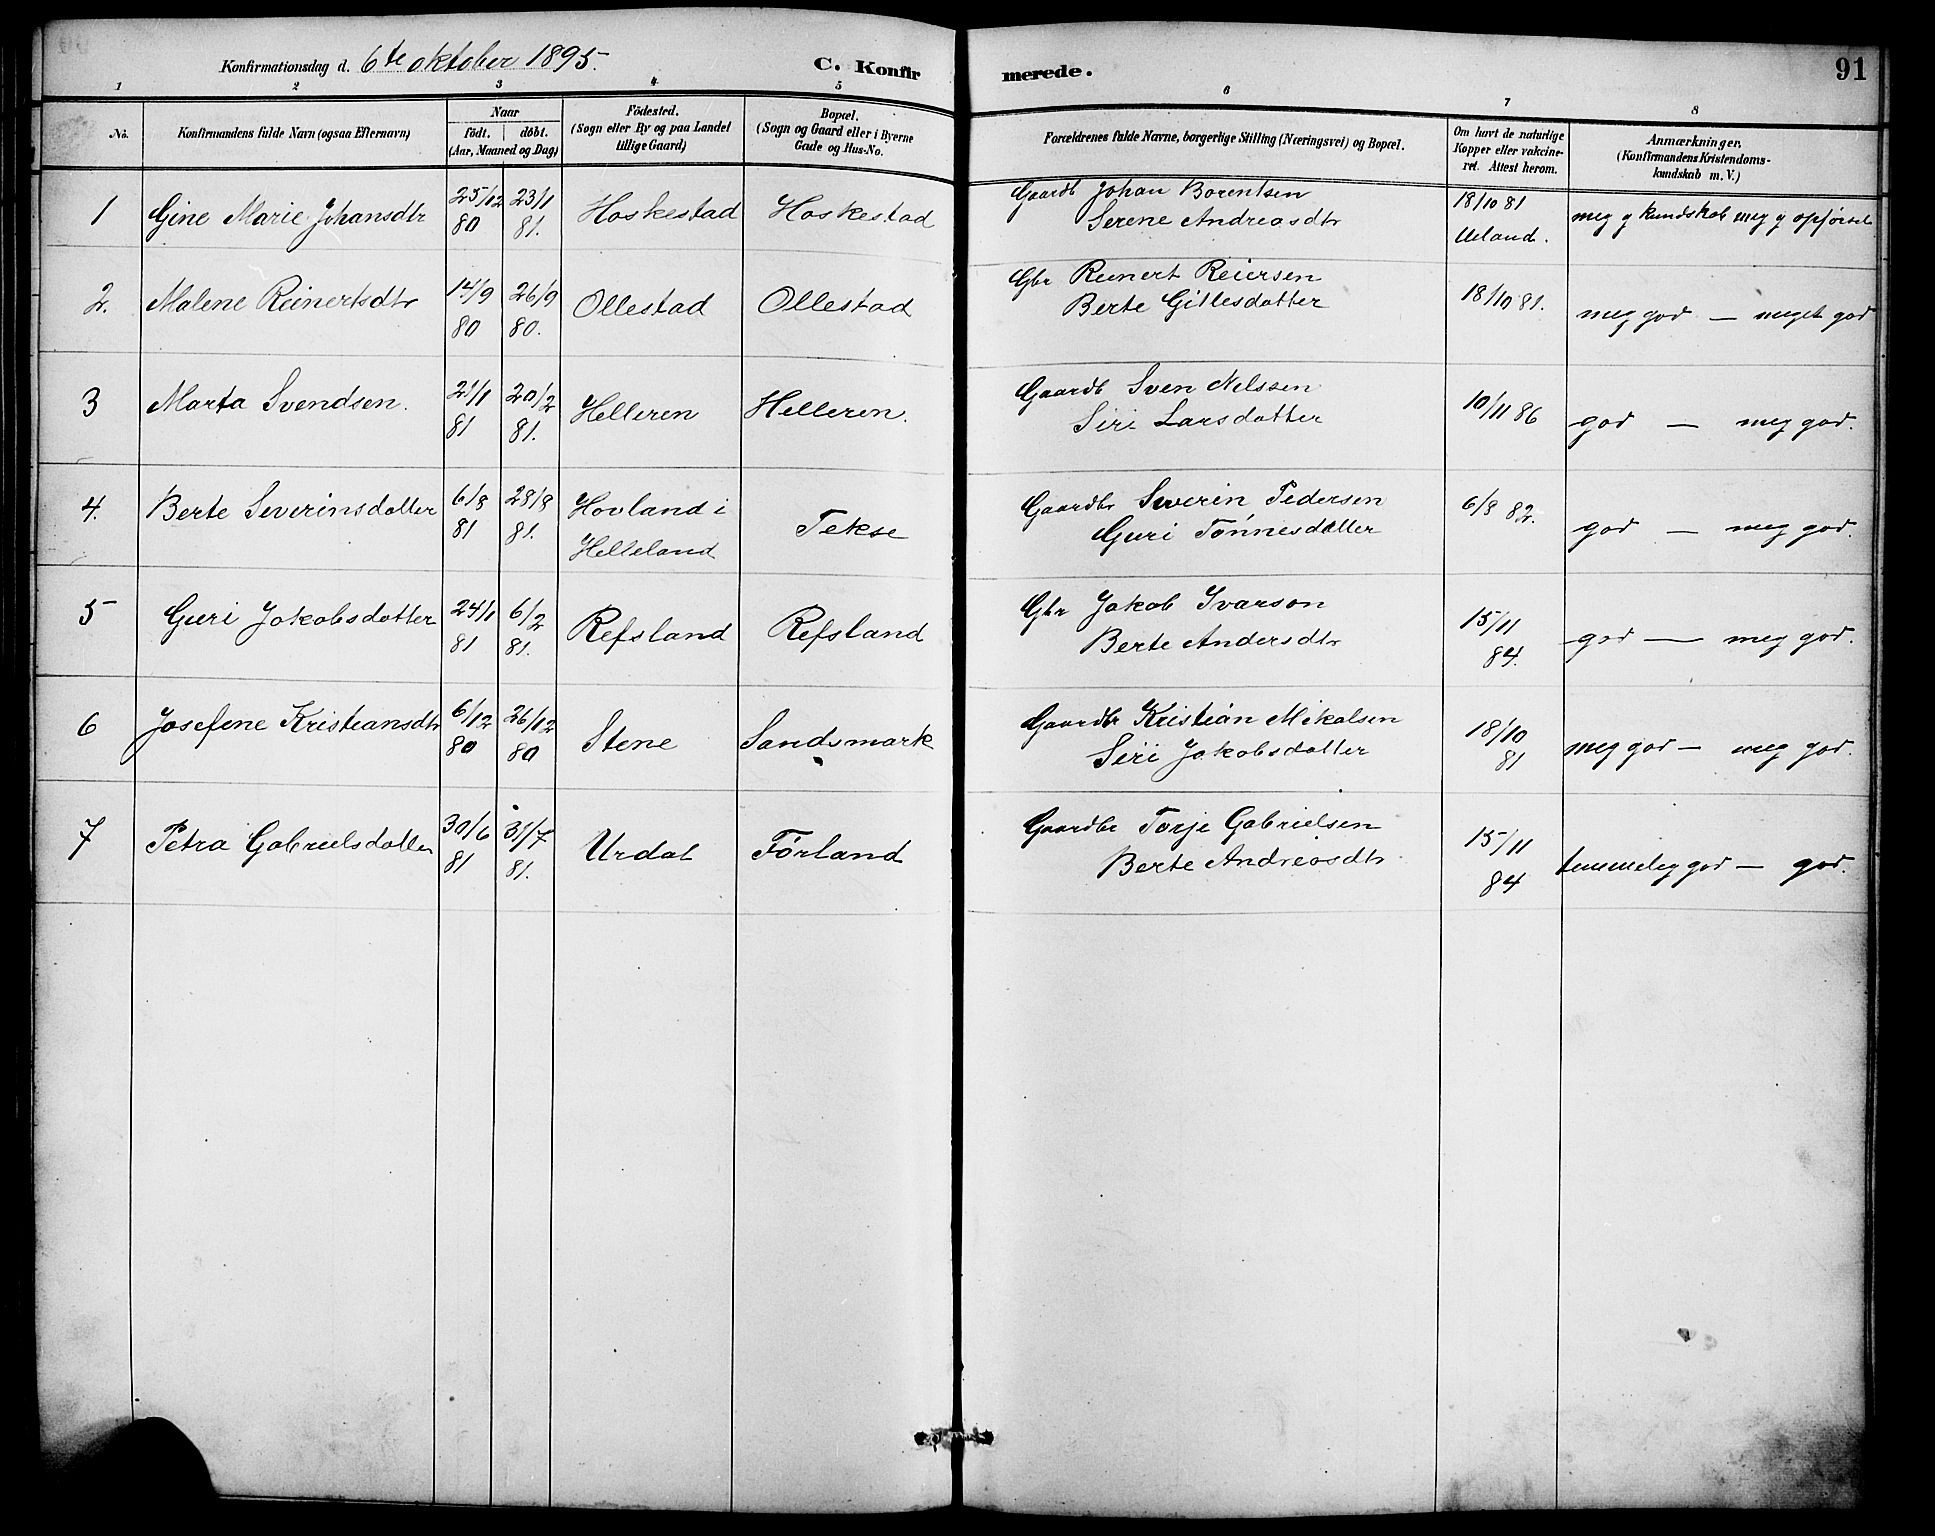 Konfirmationsdag d. 6te oktober 1895.
C. Konfirmerede.
91
1 2 3 4 5 6 7 8
No.
Konfirmandens fulde Navn (ogsaa Efternavn)
Naar
födt. döbt.
(Aar, Maaned og Dag)
Födested.
(Sogn eller By og paa Landet
tillige Gaard)
Bopæl.
(Sogn og Gaard eller i Byerne
Gade og Hus-No.
Forældrenes fulde Navne, borgerlige Stilling (Næringsvei) og Bopæl.
Om havt de naturlige
Kopper eller vakcine-
ret. Attest herom.
Anmærkninger.
(Konfirmandens Kristendoms-
kundskab m. V.)
1 Gine Marie Johansdtr 25/12 80 23/1 81. Hoskestad Hoskestad Gaardb Johan Borentsen 18/10 81 meg g kundskab meg g opførsel
Serene Andreasdtr Ueland.
2. Malene Reinertsdtr 14/9 80 26/9 80. Ollestad Ollestad Gbr Reinert Reiersen 18/10 81. meg god — meget god
Berte Gillesdatter
3 Marta Svendsen. 21/1 81 20/2 81. Helleren Helleren. Gaardb Sven Nelssen 10/11 86 god — meg god.
Siri Larsdatter
4. Berte Severinsdatter 6/8 81 28/8 81. Hovland i Helleland Tekse Gaardbr Severin Pedersen 6/8 82. god — meg god.
Guri Tønnesdatter
5 Guri Jakobsdatter 24/1 81 6/2 81. Refsland Refsland Gbr Jakob Ivarson 15/11 84. god — meg god.
Berte Andersdtr
6 Josefine Kristiansdtr 6/12 80 26/12 80 Stene Sandsmark Gaardbr Kristian Mikalsen 18/10 81 meg god — meg god.
Siri Jakobsdatter
7 Petra Gabrielsdatter 30/6 81 31/7 81. Urdal Førland Gaardbr Torje Gabrielsen 15/11 84 temmelig god — god.
Berte Andreasdtr